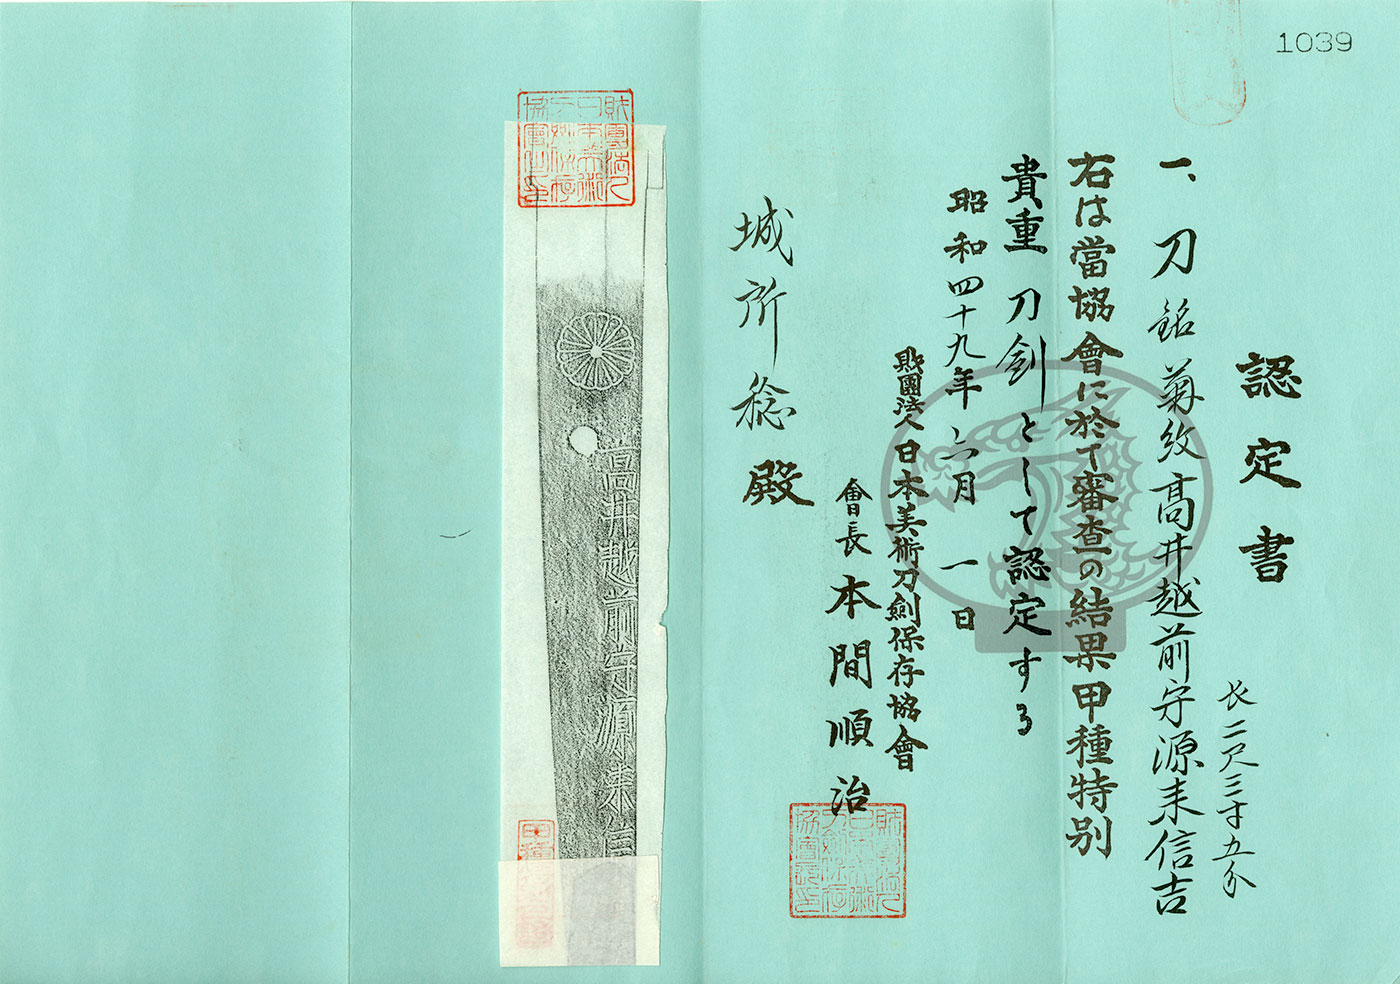 1039
認定書
一、刀 銘 菊紋 高井越前守源来信吉
长二尺三寸五分
右は當協會に於て審査の結果甲種特別
貴重刀剣として認定する
昭和四十九年六月一日
財團法人日本美術刀劍保存協會
會長 本間順治
城所稔殿
高井越前守源来信